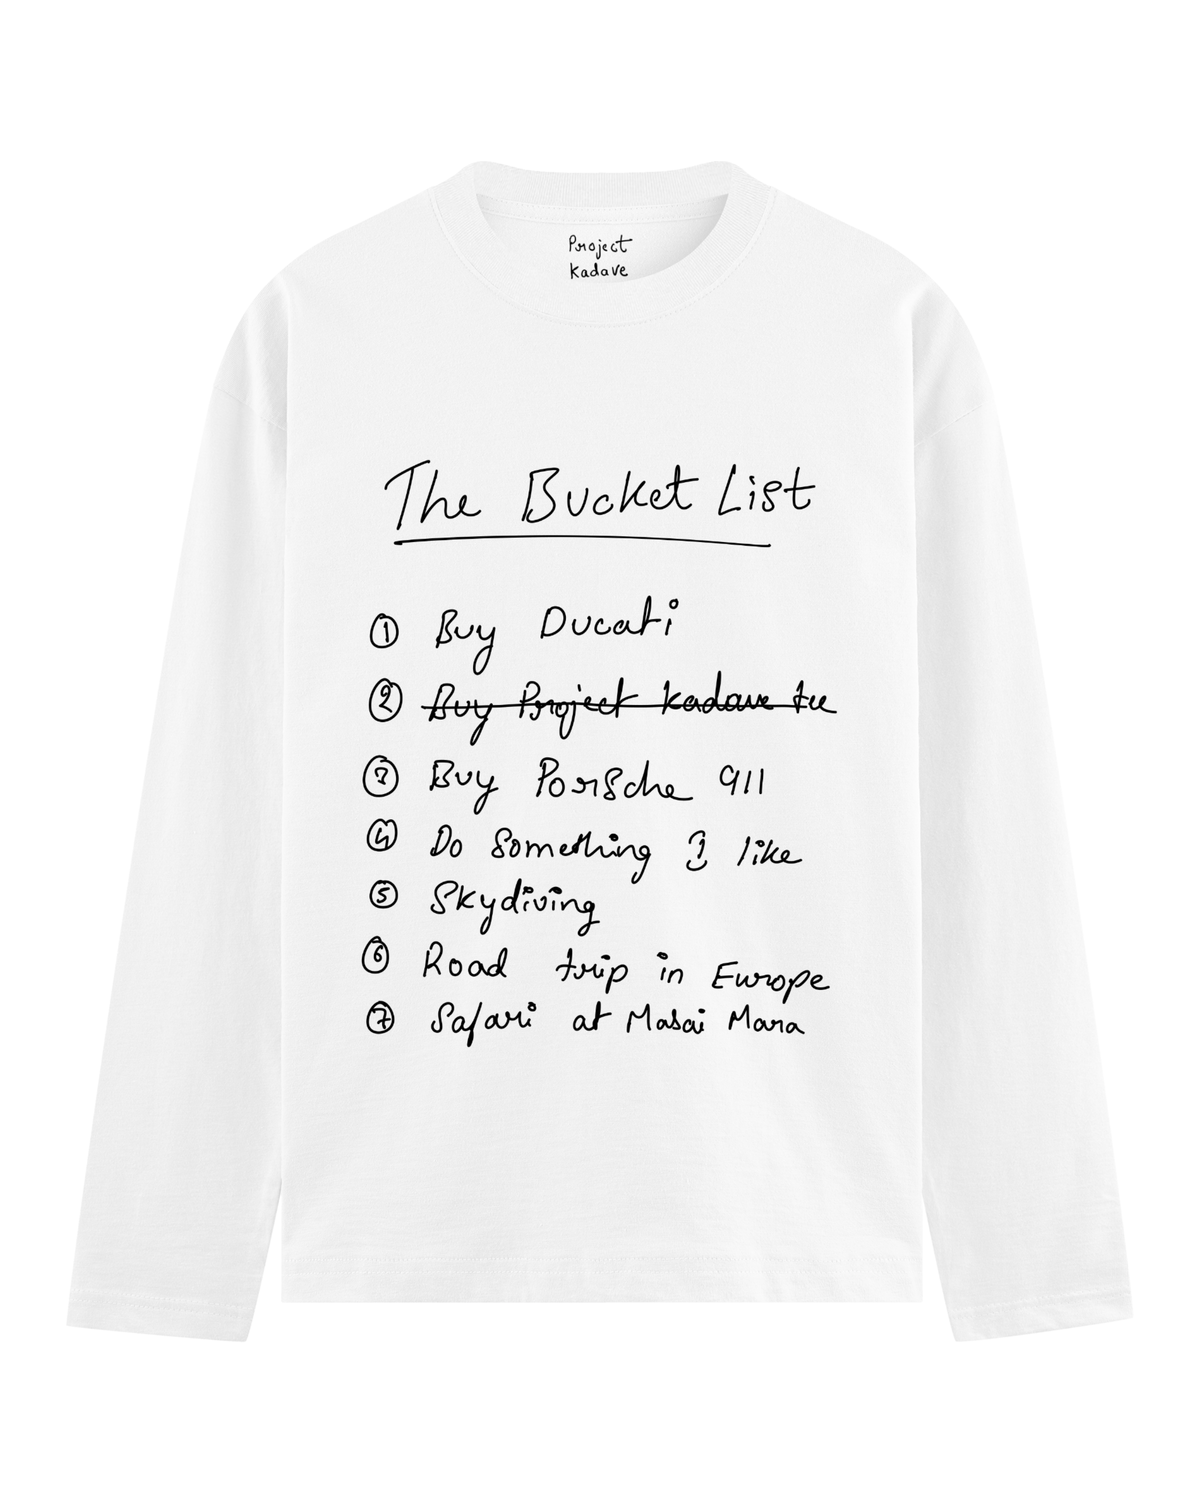 Project
kadave
The Bucket List
1 Buy Ducati
2 Buy Project kadave tee
3 Buy Porsche 911
4 Do Something I like
5 Skydiving
6 Road trip in Europe
7 Safari at Masai Mara